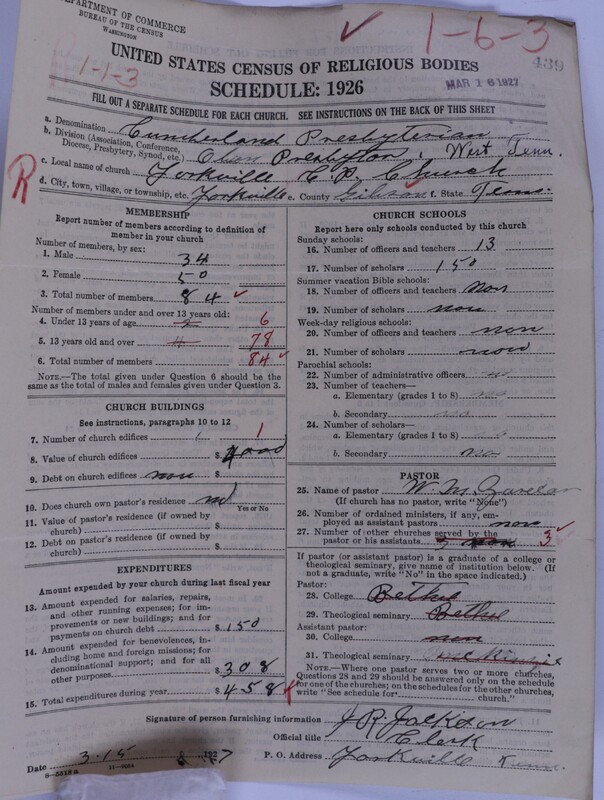 DEPARTMENT OF COMMERCE
BUREAU OF THE CENSUS
WASHINGTON
1-6-3
1-1-3
439
UNITED STATES CENSUS OF RELIGIOUS BODIES
MAR 16 1927
SCHEDULE: 1926
FILL OUT A SEPARATE SCHEDULE FOR EACH CHURCH. SEE INSTRUCTIONS ON THE BACK OF THIS SHEET
a. Denomination Cumberland Presbyterian
b. Division (Association, Conference, Diocese, Presbytery, Synod, etc.) Presbytery, West Tenn.
c. Local name of church Yorkville C. P. Church
R
d. City, town, village, or township, etc. Yorkville e. County Gibson f. State Tenn.
MEMBERSHIP
Report number of members according to definition of member in your church
Number of members, by sex:
1. Male 34
2. Female 50
3. Total number of members 84
Number of members under and over 13 years old:
4. Under 13 years of age 6
5. 13 years old and over 78
6. Total number of members 84
NOTE.—The total given under Question 6 should be the same as the total of males and females given under Question 3.
CHURCH BUILDINGS
See instructions, paragraphs 10 to 12
7. Number of church edifices 1 1
8. Value of church edifices $ 4000
9. Debt on church edifices $
10. Does church own pastor's residence no
Yes or No
11. Value of pastor's residence (if owned by church) $
12. Debt on pastor's residence (if owned by church) $
EXPENDITURES
Amount expended by your church during last fiscal year
13. Amount expended for salaries, repairs, and other running expenses; for improvements or new buildings; and for payments on church debt $ 150
14. Amount expended for benevolences, including home and foreign missions; for denominational support; and for all other purposes $ 308
15. Total expenditures during year $ 458
CHURCH SCHOOLS
Report here only schools conducted by this church
Sunday schools:
16. Number of officers and teachers 13
17. Number of scholars 150
Summer vacation Bible schools:
18. Number of officers and teachers non
19. Number of scholars non
Week-day religious schools:
20. Number of officers and teachers non
21. Number of scholars non
Parochial schools:
22. Number of administrative officers no
23. Number of teachers—
a. Elementary (grades 1 to 8) no
b. Secondary no
24. Number of scholars—
a. Elementary (grades 1 to 8)
b. Secondary no
PASTOR
25. Name of pastor W. M.
(If church has no pastor, write "None")
26. Number of ordained ministers, if any, employed as assistant pastors non
27. Number of other churches served by the pastor or his assistants 3
If pastor (or assistant pastor) is a graduate of a college or theological seminary, give name of institution below. (If not a graduate, write "No" in the space indicated.)
Pastor:
28. College Bethel
29. Theological seminary Bethel
Assistant pastor:
30. College non
31. Theological seminary
NOTE.—Where one pastor serves two or more churches, Questions 28 and 29 should be answered only on the schedule for one of the churches; on the schedules for the other churches, write "See schedule for church."
Signature of person furnishing information J R Jackson
Official title Clerk
Date 3-15 1927
P. O. Address Yorkville Tenn.
8-5518 a
11-9034